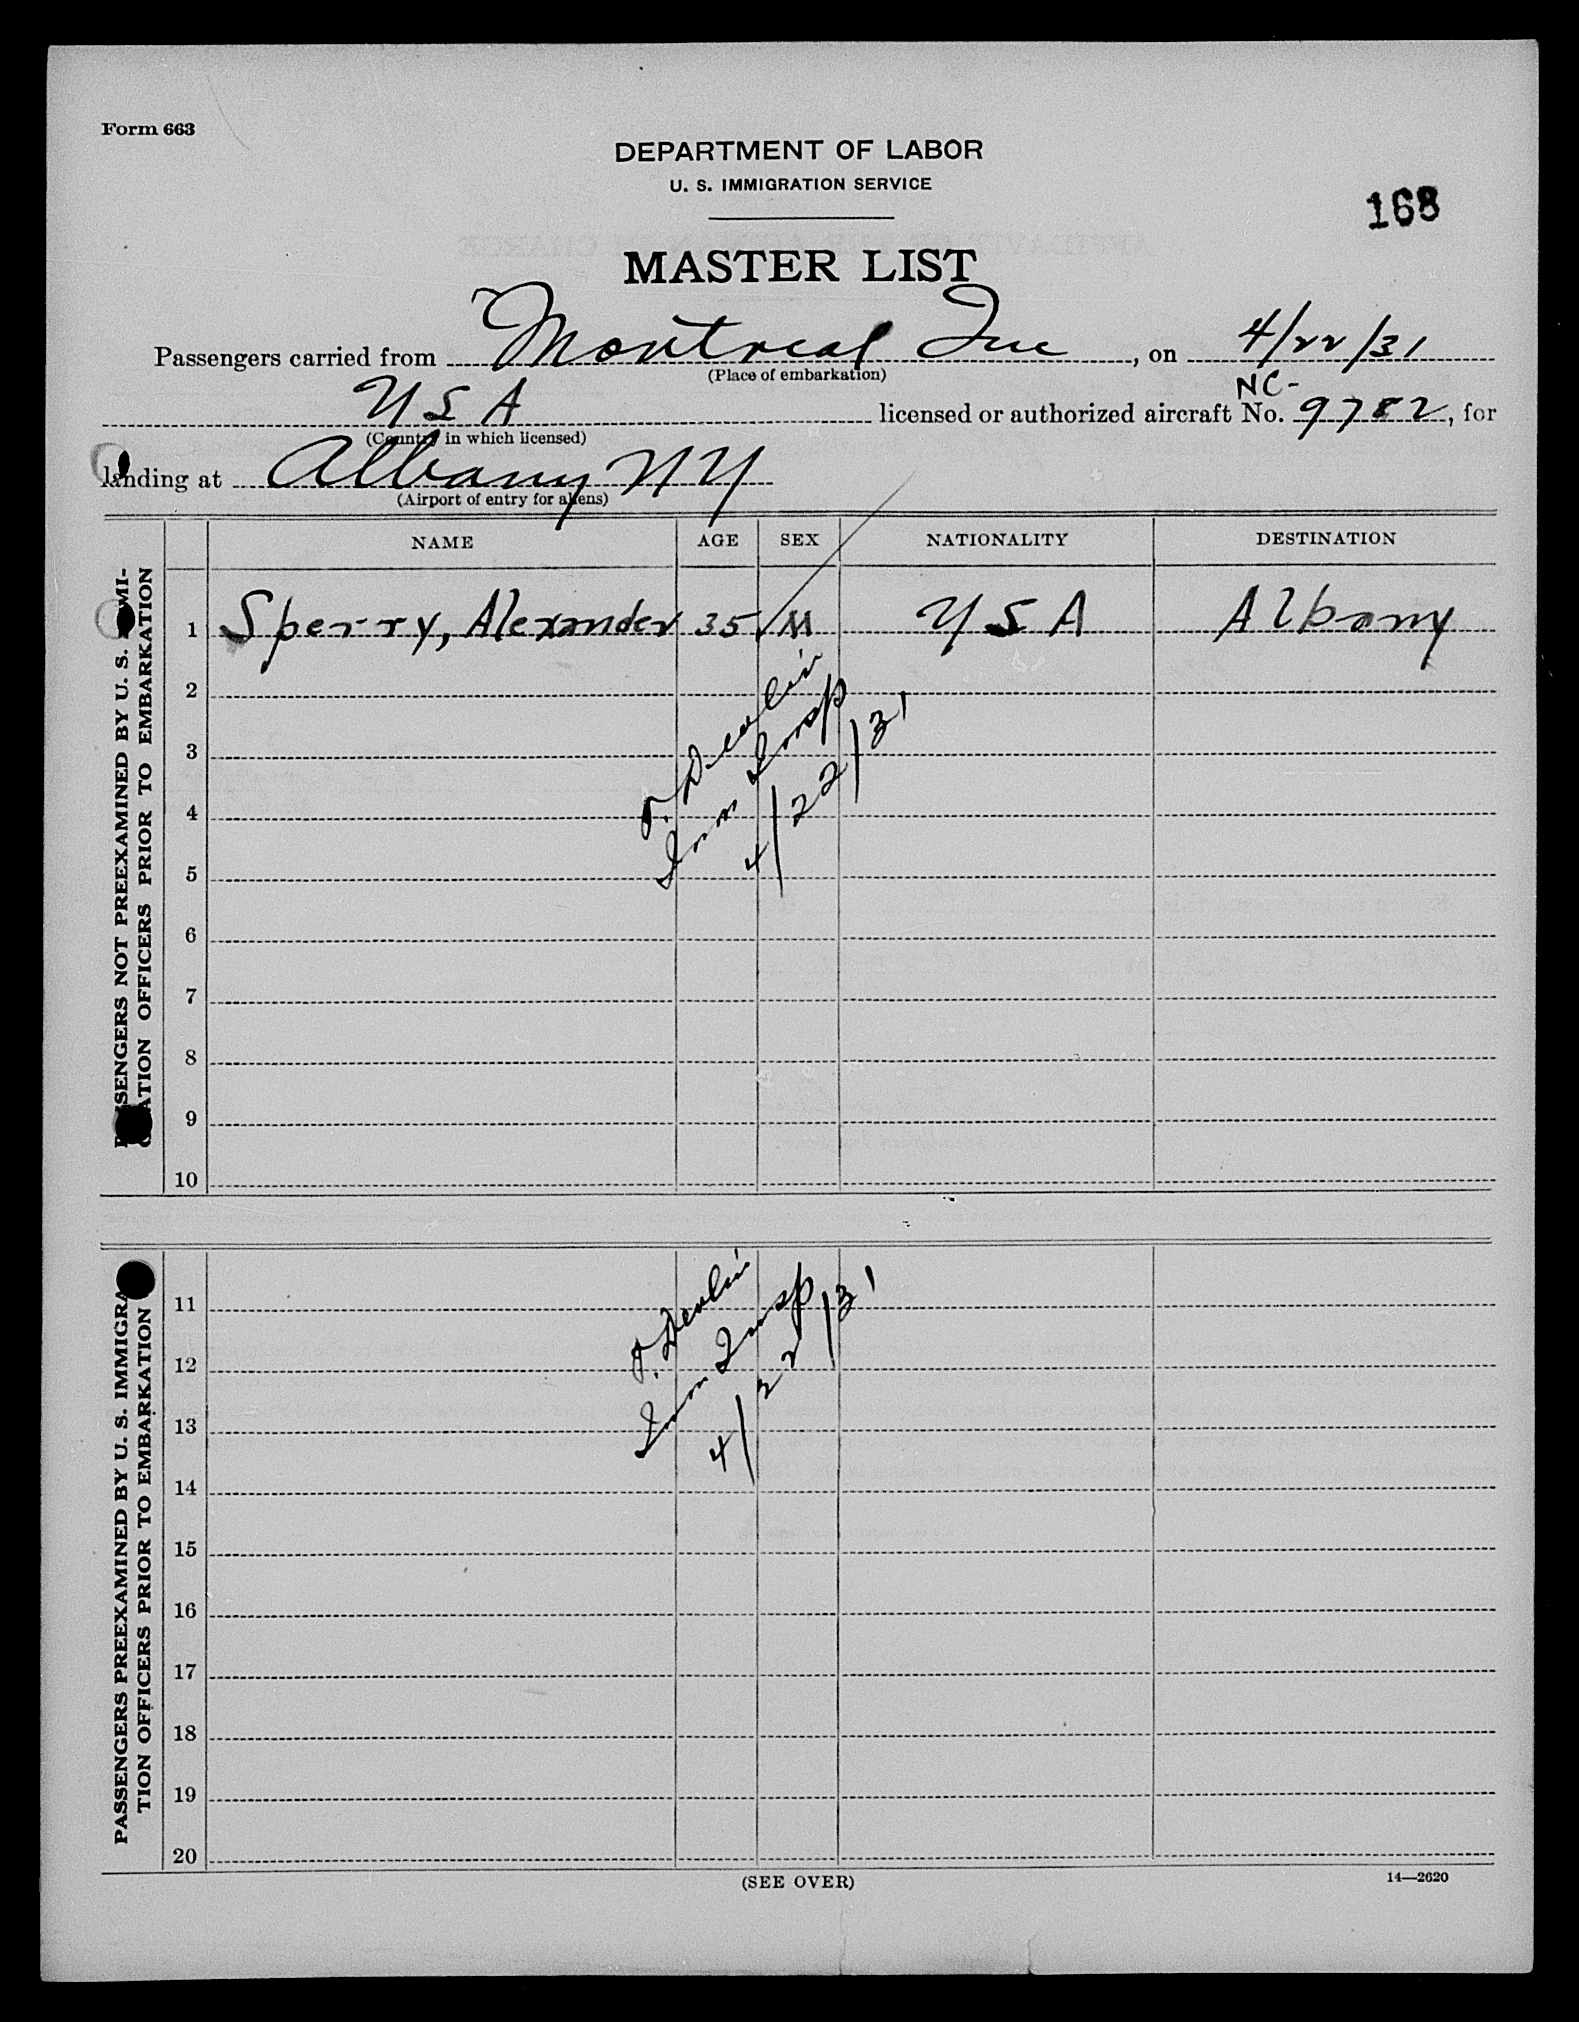 Form 663
DEPARTMENT OF LABOR
U. S. IMMIGRATION SERVICE
168
MASTER LIST
Passengers carried from Montreal Que, on 4/22/31
(Place of embarkation)
USA licensed or authorized aircraft No. NC-9782, for
(Country in which licensed)
landing at Albany NY
(Airport of entry for aliens)
NAME AGE SEX NATIONALITY DESTINATION
PASSENGERS NOT PREEXAMINED BY U. S. IMMI-
GRATION OFFICERS PRIOR TO EMBARKATION
1 Sperry, Alexander 35 M USA Albany
2
3
4
5
6
7
8
9
10
Devlin
Imm Insp
4/22/31
PASSENGERS PREEXAMINED BY U. S. IMMIGRA
TION OFFICERS PRIOR TO EMBARKATION
11
12
13
14
15
16
17
18
19
20
Devlin
Imm Insp
4/22/31
(SEE OVER)
14—2620